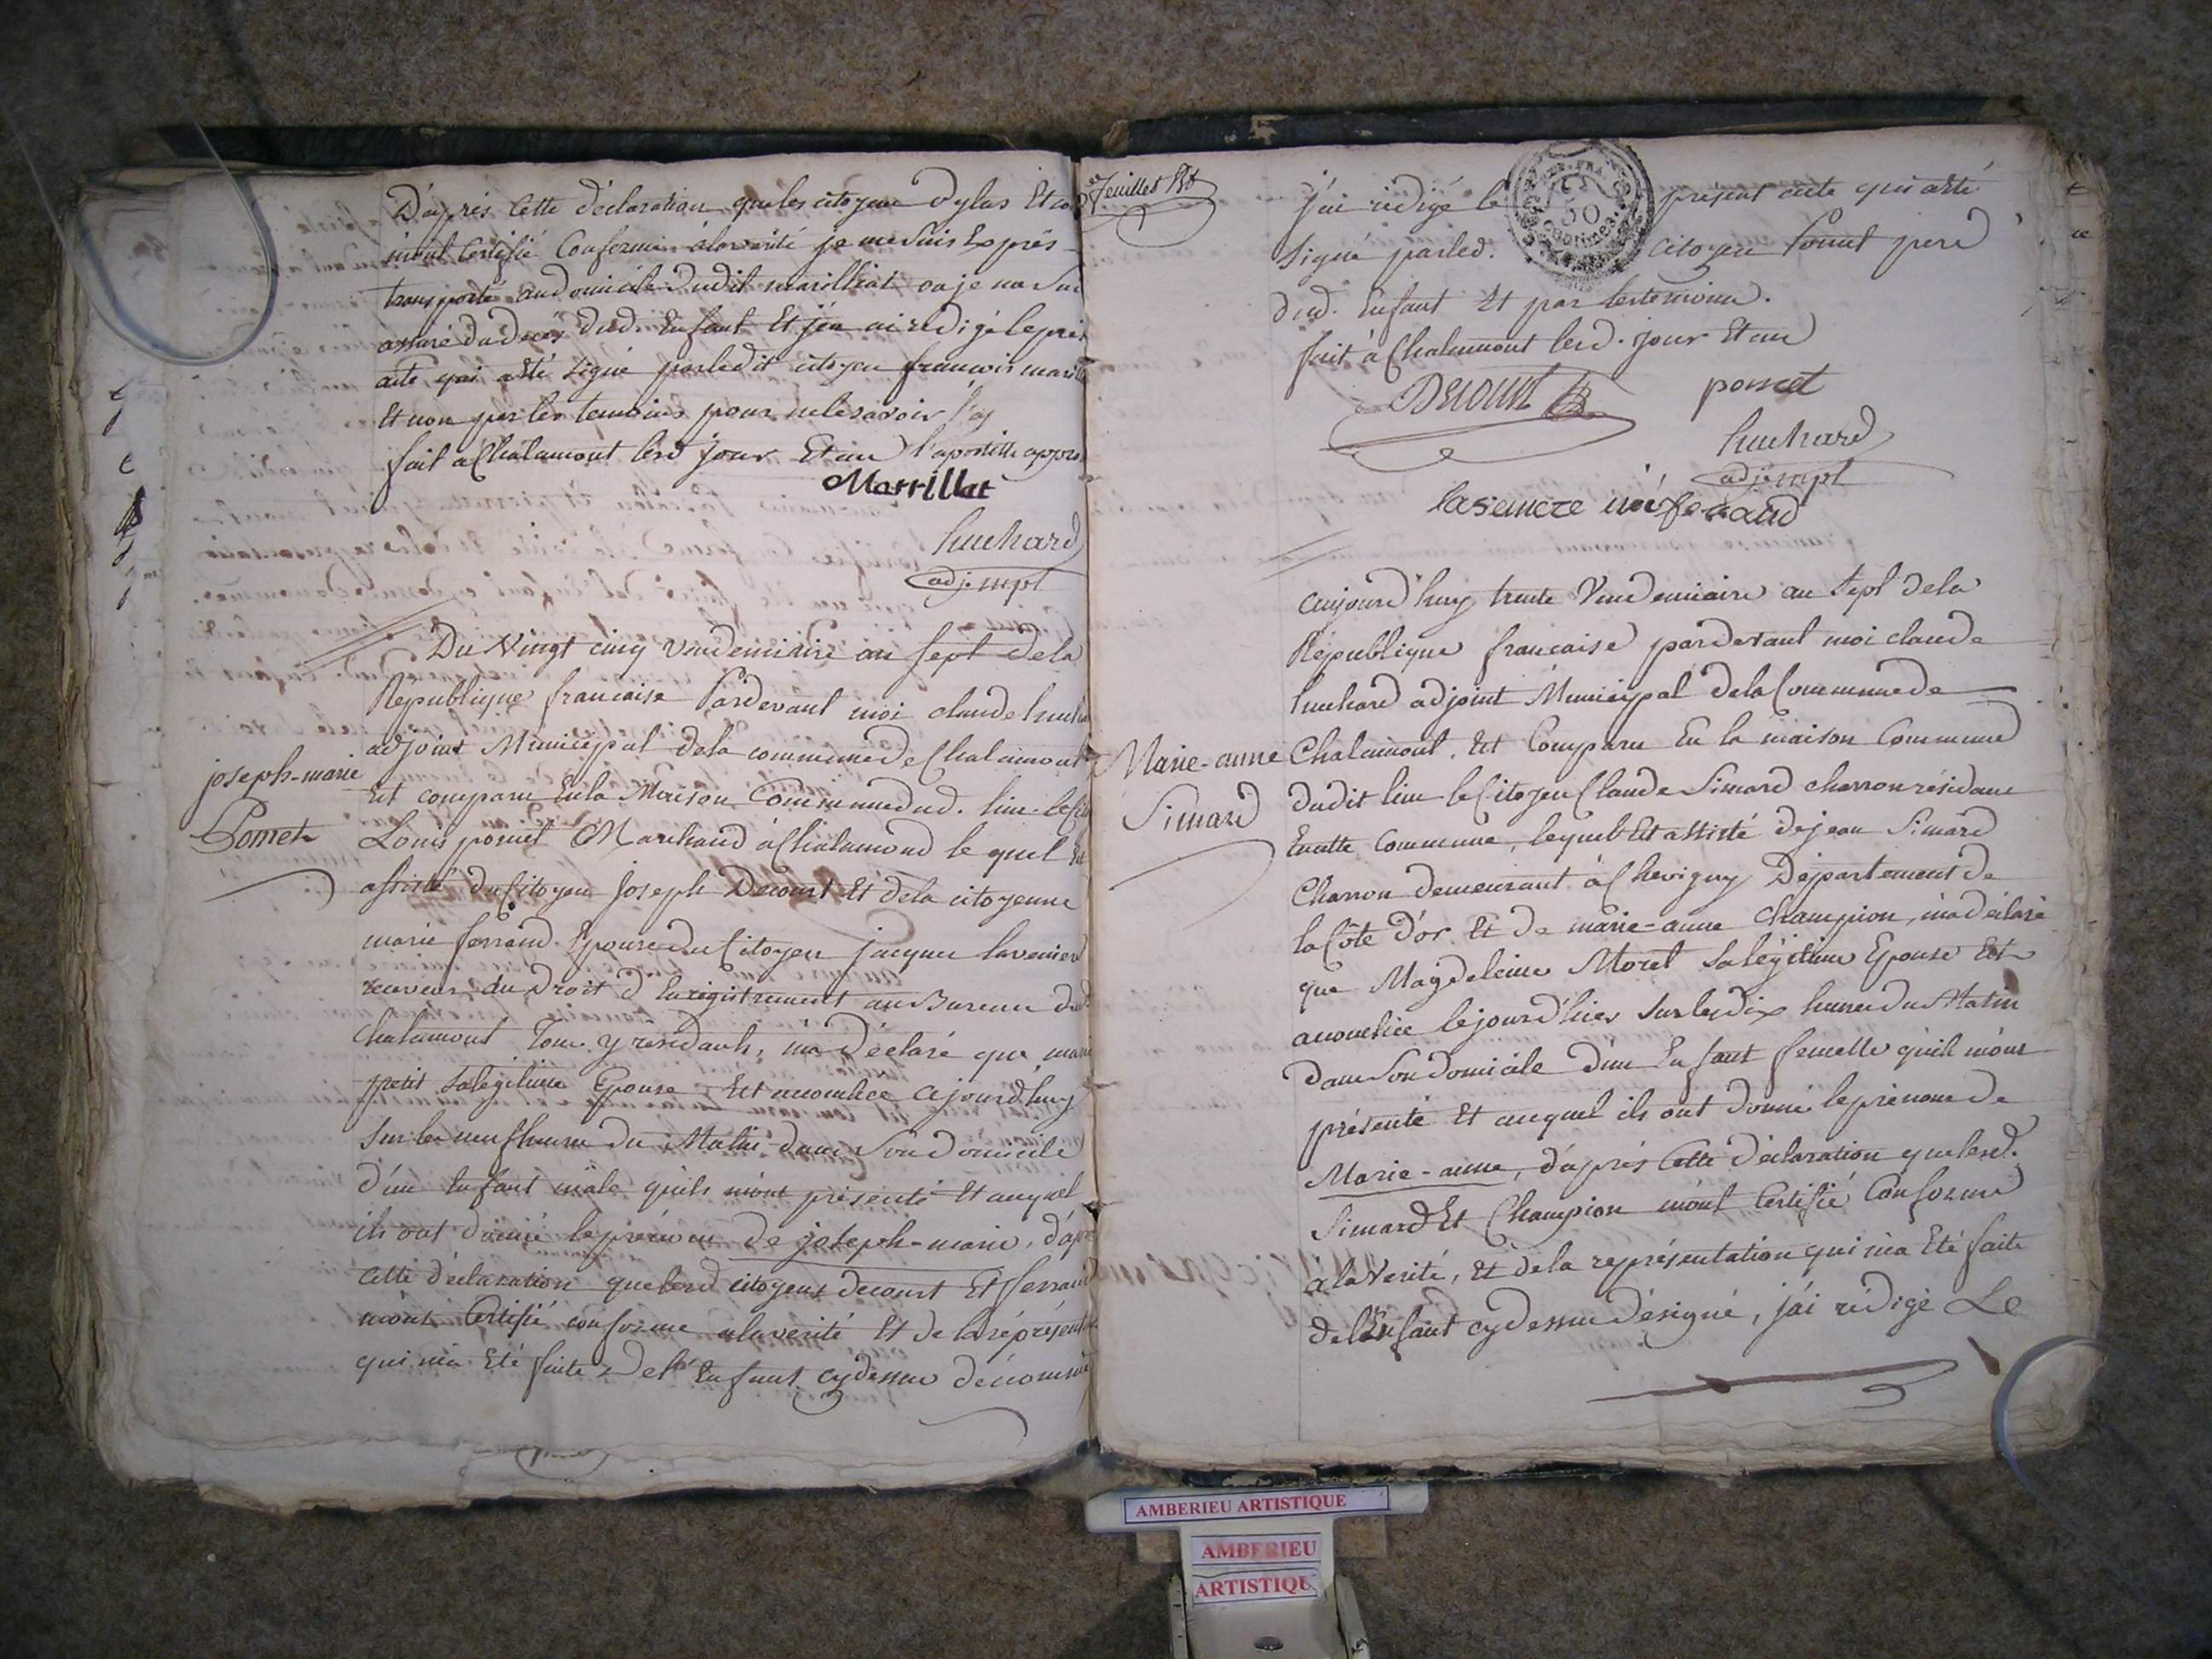 D'après Cette déclaration queles citoyens Dylas Et
m'ont Certifié Conforme àlaverité je mesuis Exprès
transporté audomicile dudit marilliat ouje ma suis
assuré dudecès dud. Enfant Et j'en ai redigé le prés
acte qui aété signé parledit citoyen francois maril
Et non par les temoins pour nelesavoir
fait à Chalamont lesd jour Etan l'apostille appro
Marrillat
huchard
adj. mpl
Du Vingt cinq vendemiaire an sept dela
République francaise Pardevant moi claude huch
adjoint Municipal dela commune de Chalamont
joseph-marie
Pomet
Est comparu Enla Maison Commune dud. lieu le Cit
Louis pomet Marchand à Chalamond le quel Est
assisté du Citoyen joseph Decourt Et dela citoyenne
marie ferrand Epouse du Citoyen jacques lavenier
receveur du Droit d'Enregistrement au Bureau dud
chalamont Tous y résidants, m'a déclaré que marie
petit salégitime Epouse Est accouchée cejourd'huy
sur les neuf heures du Matin dans son domicile
d'un Enfant mâle qu'ils m'ont présenté Et auquel
ils ont donné leprénom de joseph-marie, d'apr
Cette déclaration que lesd citoyens decourt Et ferrand
m'ont Certifié conforme alaverité Et de la représent
qui m'a Eté faite De l'Enfant cydessus dénommé
Feuillet
j'ai rédigé le présent acte qui aété
50
signé parled. Citoyen Pomet pere
dud. Enfant Et par lestemoins.
fait à Chalamont lesd. jour Etan
Decourt pomet
huchard
adj. mpl
née ferrand
aujourd'huy trente Vendemiaire an sept dela
République francaise pardevant moi claude
huchard adjoint Municipal dela Commune de
Marie-anne
Simard
Chalamont, Est Comparu En la maison Commune
dudit lieu le Citoyen Claude Simard charron résidant
Encette Commune, lequel Est assisté de jean Simard
Charron demeurant à Chevigny Département de
la Côte d'or Et de marie-anne Champion, m'a déclaré
que Magdeleine Morel Salégitime Epouse Est
accouchée lejourd'hier sur les dix heures du Matin
dans Son domicile d'un Enfant femelle qu'ils m'ont
présenté Et auquel ils ont donné leprénom de
Marie-anne, d'après Cette déclaration que lesd.
Simard Et Champion m'ont Certifié Conforme
a la Verité, Et de la représentation qui m'a Eté faite
de l'Enfant cydessus désigné, j'ai rédigé Le
AMBERIEU ARTISTIQUE
AMBERIEU
ARTISTIQU